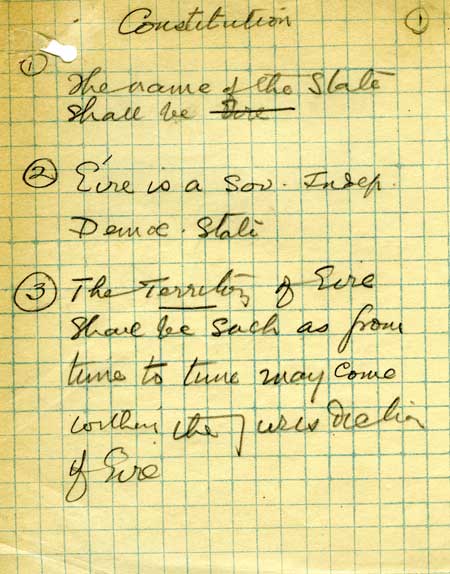 Constitution ①
① The name of the State
shall be Eire
② Éire is a Sov. Indep.
Democ. State
③ The Territory of Eire
shall be such as from
time to time may come
within the jurisdiction
of Eire